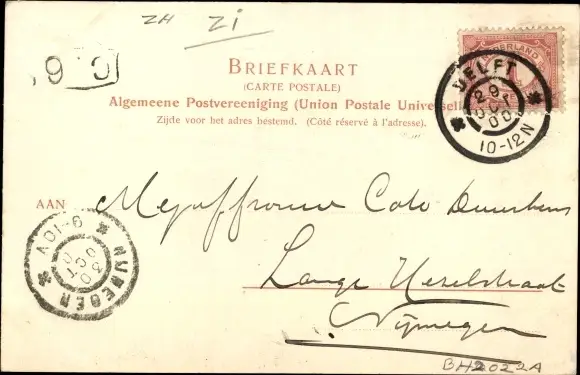 ZH ZI
BRIEFKAART
(CARTE POSTALE)
Algemeene Postvereeniging (Union Postale Universelle)
Zijde voor het adres bestemd. (Côté réservé à l'adresse).
DELFT
29
OCT
00
10-12N
AAN Mejuffrouw Coto
Lange Hezelstraat
Nijmegen
NIJMEGEN
9-10V
30
OCT
BH2022A